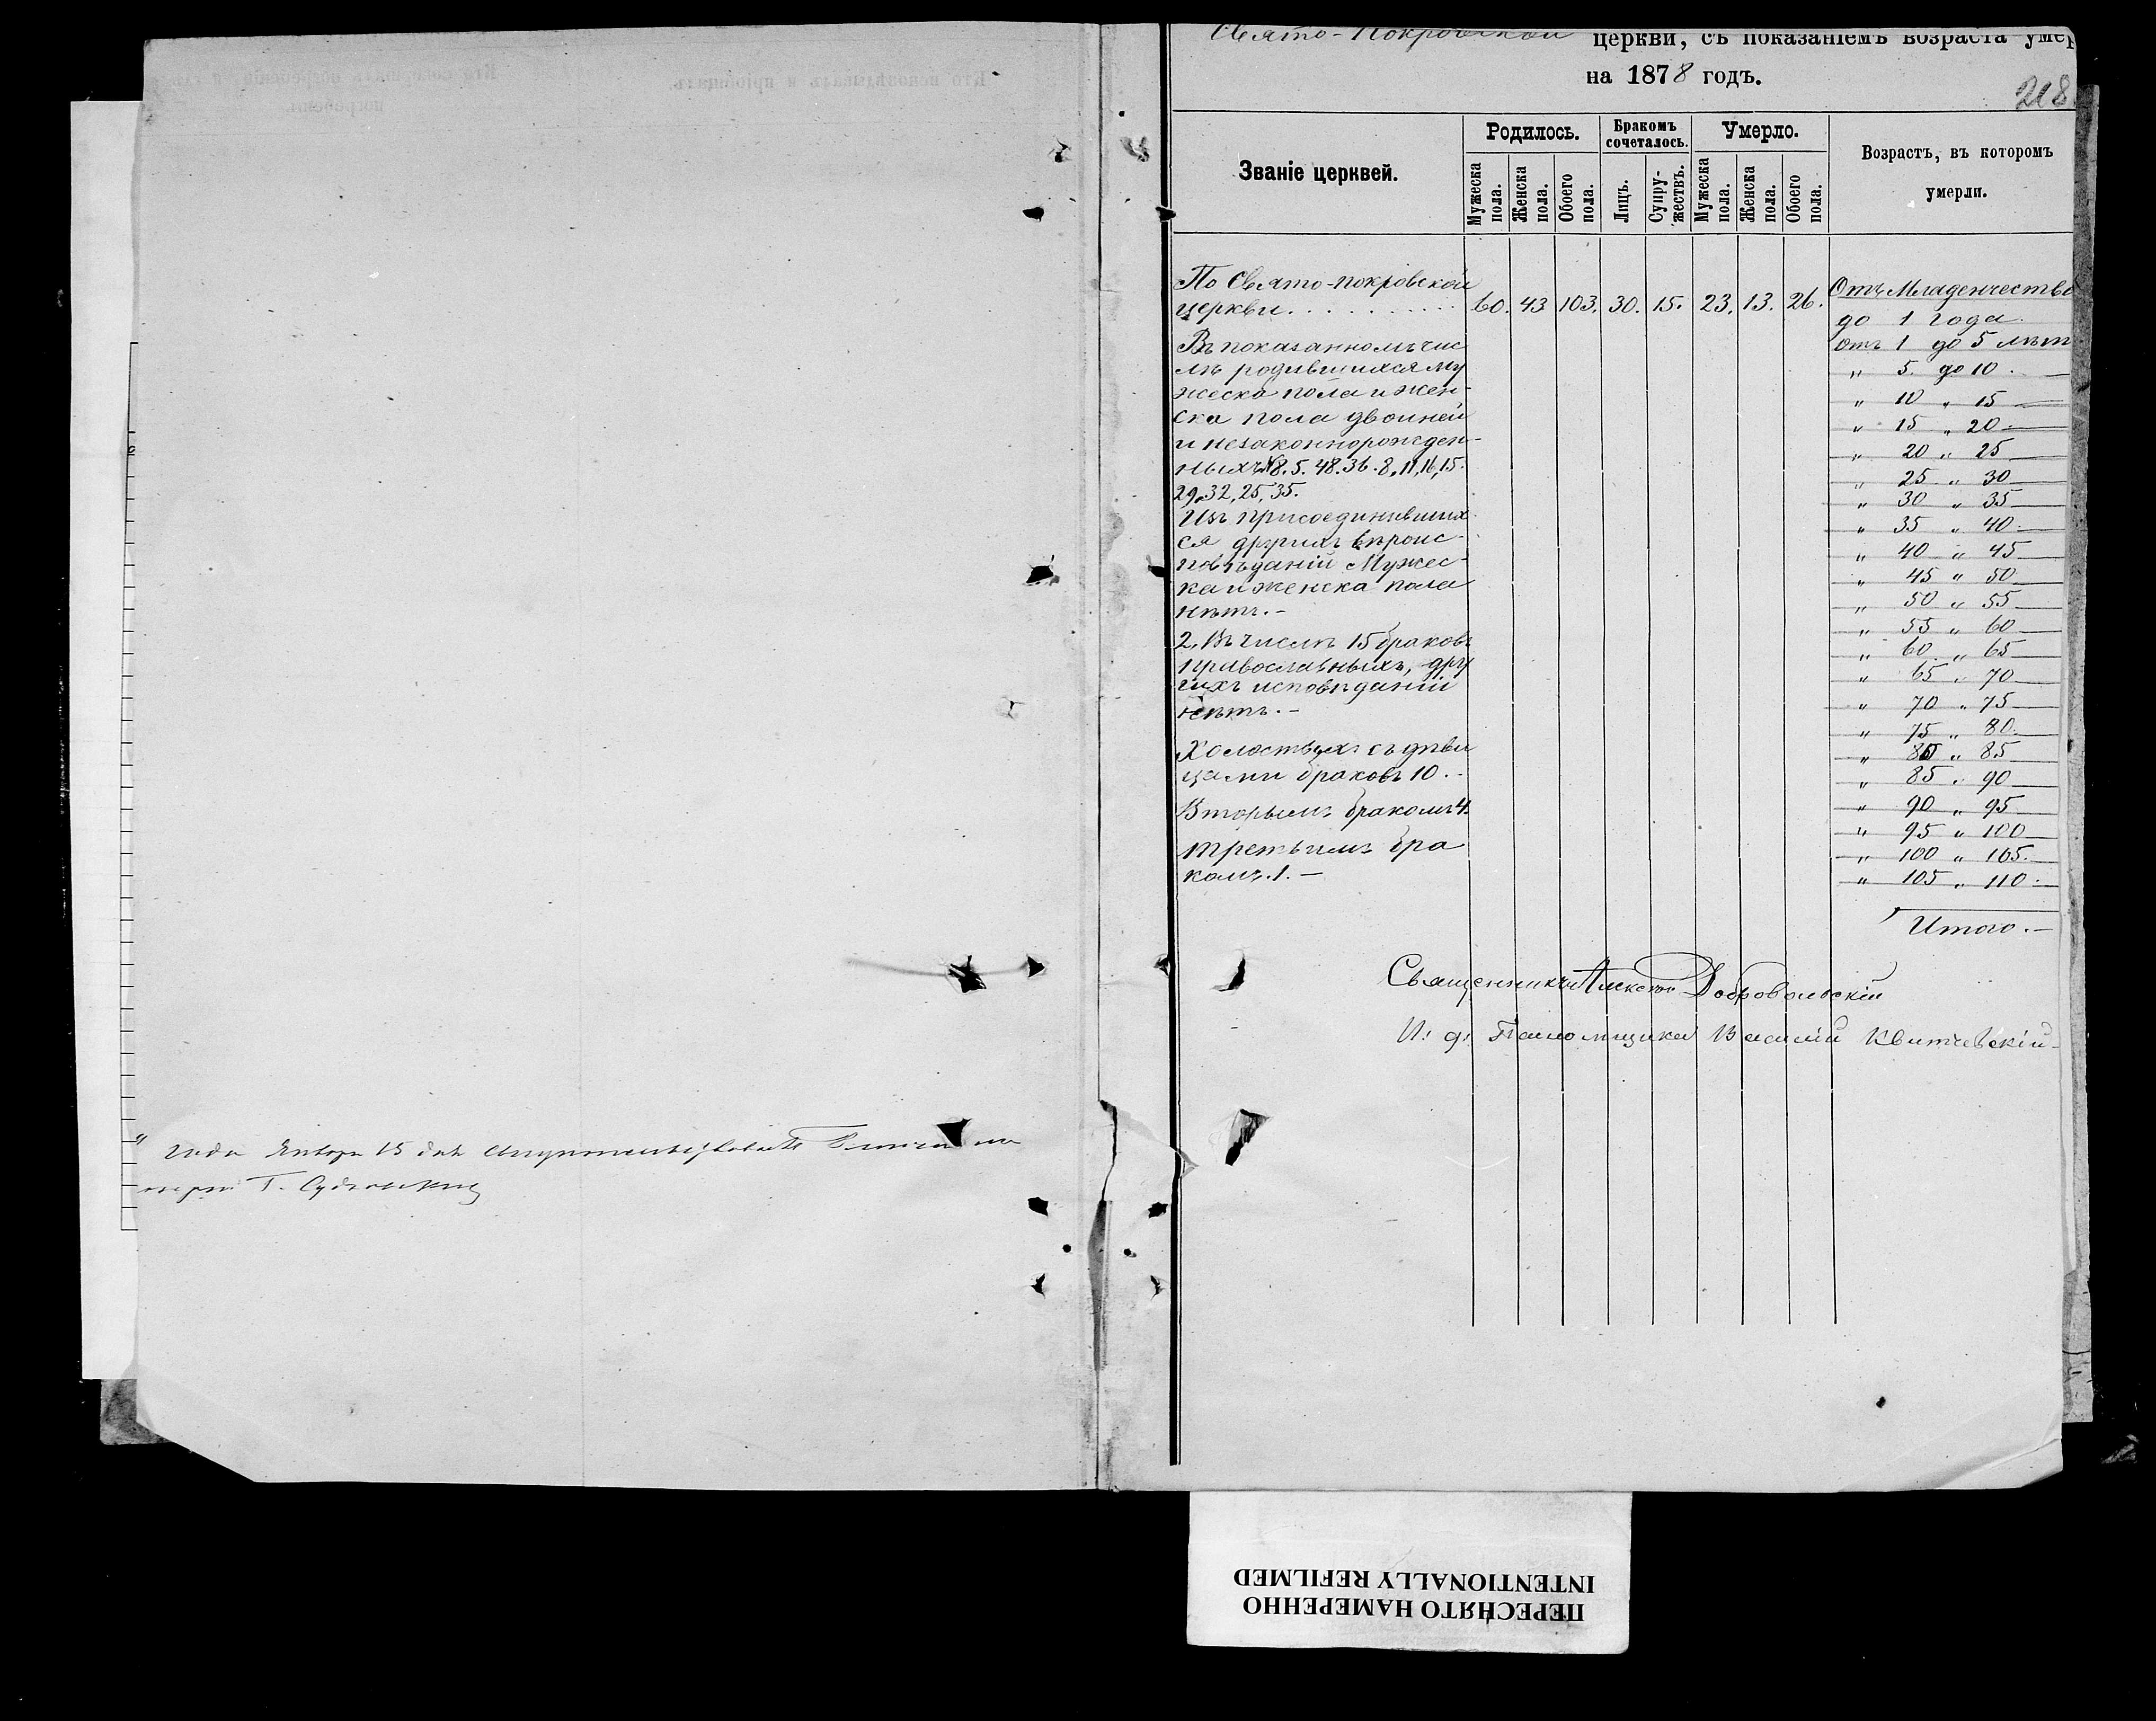 года Января 15 дня
Свято-Покровской церкви, съ показаніемъ возраста умер
на 1878 годъ.
218
Званіе церквей.
Родилось.
Бракомъ сочеталось.
Умерло.
Возрастъ, въ котором умерли.
Мужеска пола.
Женска пола.
Обоего пола.
Лицъ.
Супружествъ.
Мужеска пола.
Женска пола.
Обоего пола.
По Свято-покровской
церкви . . . . . . . . . . 60. 43 103. 30. 15. 23. 13. 26.
Въ показанномъ чис
лѣ родившихся му
жеска пола и жен-
ска пола двойней
и незаконнорожден-
ныхъ №8. 5. 48. 36. 8, 11, 16, 15.
29, 32, 25, 35.
Изъ присоединивших
ся другихъ вѣроис-
повѣданій Мужес-
ка и женска пола
нѣтъ. -
2, Въ числѣ 15 браковъ
православныхъ, дру
гихъ исповѣданій
нѣтъ. -
Холостыхъ съ дѣви
цами браковъ 10. -
Вторымъ бракомъ 4.
третьимъ бра
комъ. 1. —
Отъ Младенчества
до 1 года.
отъ 1 до 5 лѣт
„ 5. до 10.
„ 10 „ 15
„ 15 „ 20
„ 20 „ 25
„ 25 „ 30
„ 30 „ 35
„ 35 „ 40
„ 40 „ 45
„ 45 „ 50
„ 50 „ 55
„ 55 „ 60
„ 60 „ 65
„ 65 „ 70
„ 70 „ 75
„ 75 „ 80
„ 80 „ 85
„ 85 „ 90
„ 90 „ 95
„ 95 „ 100
„ 100 „ 105.
„ 105 „ 110
Итого. —
Священникъ Алексѣй Добровольскій
И: д: Псаломщика Василій Квитчевскій
ПЕРЕСНЯТО НАМЕРЕННО
INTENTIONALLY REFILMED